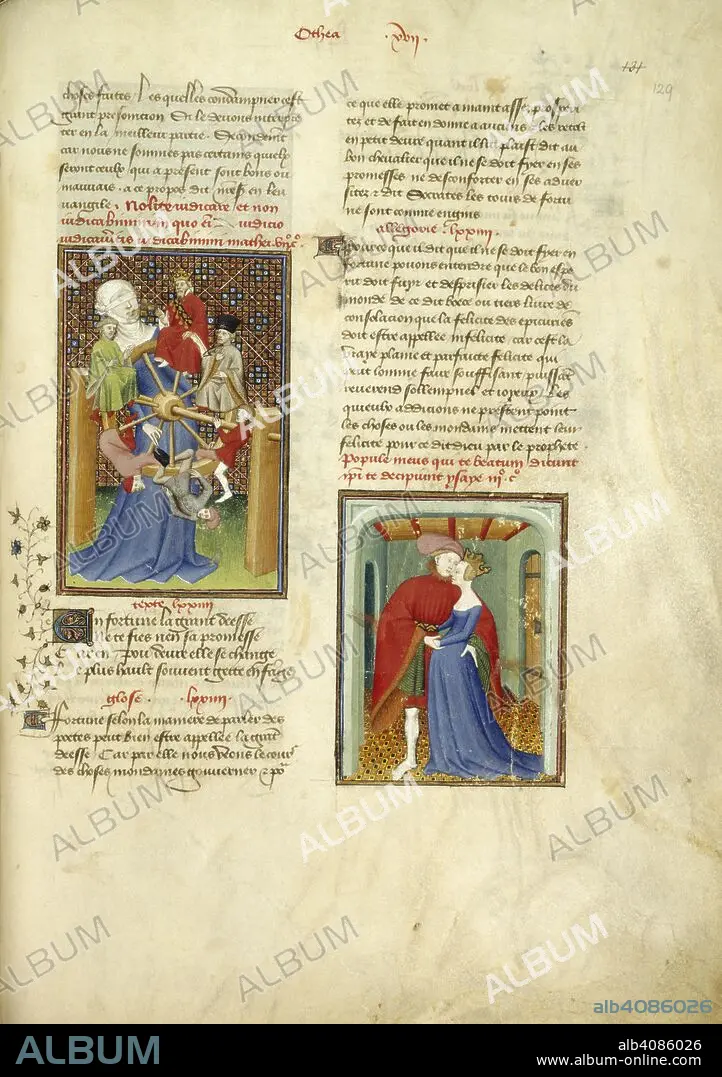 Othea .xvii.
131
129
choses faites Les quelles condampner cest
grant presomcion Si le devons interpre
ter en la meilleur partie. Secondement
car nous ne sommes pas certains quelz
seront ceulx qui a present sont bons ou
mauvais. a ce propos dit en leu
vangile. Nolite iudicare et non
iudicabimini in quo iudicio
iudicaveritis iudicabimini mathei
texte lxxiiii
En fortune la grant deesse
Ne te fies nen sa promesse
Car en pou deure elle se change
Le plus hault souvent gette en fange
glose. lxxiiii.
Fortune selon la maniere de parler des
poetes peut bien estre appellee la grant
deesse Car par elle nous veons le cours
des choses mondaines gouverner
ce que elle promet a maint assez prosperi
tez et de fait en donne a aucuns les retolt
en petit deure quant il lui plaist dit au
bon chevalier que il ne se doit fyer en ses
promesses ne desconforter en ses adver
sitez dit Socrates les tours de fortu
ne sont comme engins
allegorie lxxiiii.
Pource que il dit que il ne se doit fyer en
fortune povons entendre que le bon espe
rit doit fuyr et desprisier les delices du
monde de ce dit boece ou tiers livre de
consolacion que la felicite des epicuriens
doit estre appellee infelicite car cest la
vraye plaine et parfaicte felicite qui
peut lomme faire souffisant puissant
reverend sollempnel et ioyeux Les
quieulx ne prestent point
les choses ou les mondains mettent leur
felicite pour ce dit dieu par le prophete.
Popule meus qui te beatum dicunt
ipsi te decipiunt ysaye iii. c.
ALBUM
alb4086026
ALBUM
alb4086026
www.album-online.com